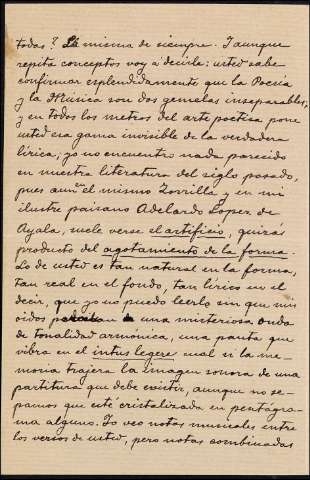 todas? La misma de siempre. Y aunque
repita conceptos voy a decirle: usted sabe
confirmar esplendidamente que la Poesía
y la Música son dos gemelas inseparables;
y en todos los metros del arte poetica pone
usted esa gama invisible de la verdadera
lírica; yo no encuentro nada parecido
en nuestra literatura del siglo pasado,
pues aun en el mismo Zorrilla y en mi
ilustre paisano Adelardo Lopez de
Ayala, suele verse el artificio, quizás
producto del agotamiento de la forma.
Lo de usted es tan natural en la forma,
tan real en el fondo, tan lírico en el
decir, que yo no puedo leerlo sin que mis
oidos una misteriosa onda
de tonalidad armónica, una pauta que
vibra en el intus legere cual si la me-
moria trajera la imagen sonora de una
partitura que debe existir, aunque no se-
pamos que esté cristalizada en pentágra-
ma alguno. Yo veo notas musicales entre
los versos de usted, pero notas combinadas